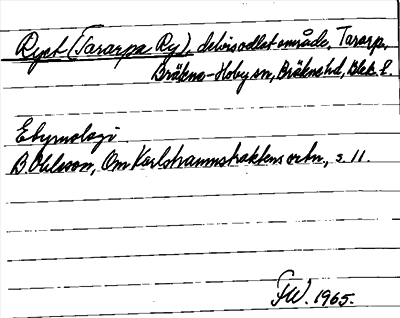 Ryet (Tararps Ry), delvis odlat område, Tararp,
Bräkne-Hoby sn, Bräkne hd, Blek. l.
Etymologi
B. Ohlsson, Om Karlshamnstraktens ortn., s. 11.
FW. 1965.